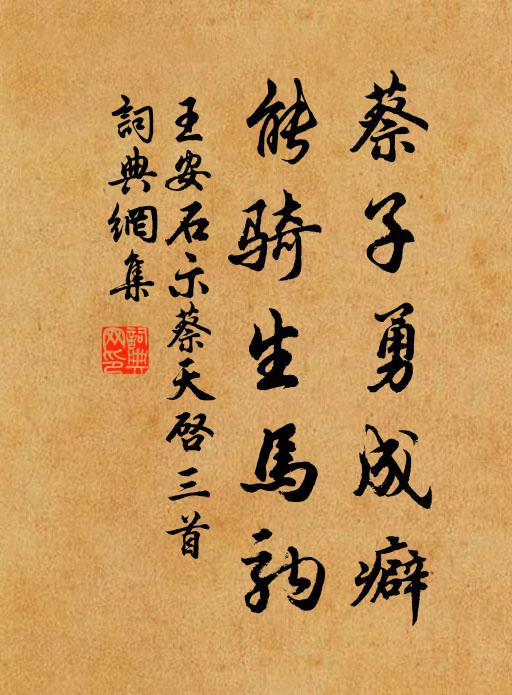 蔡子勇成癖
能騎生馬駒
王安石示蔡天啓三首
詞典網集
詞典
网印